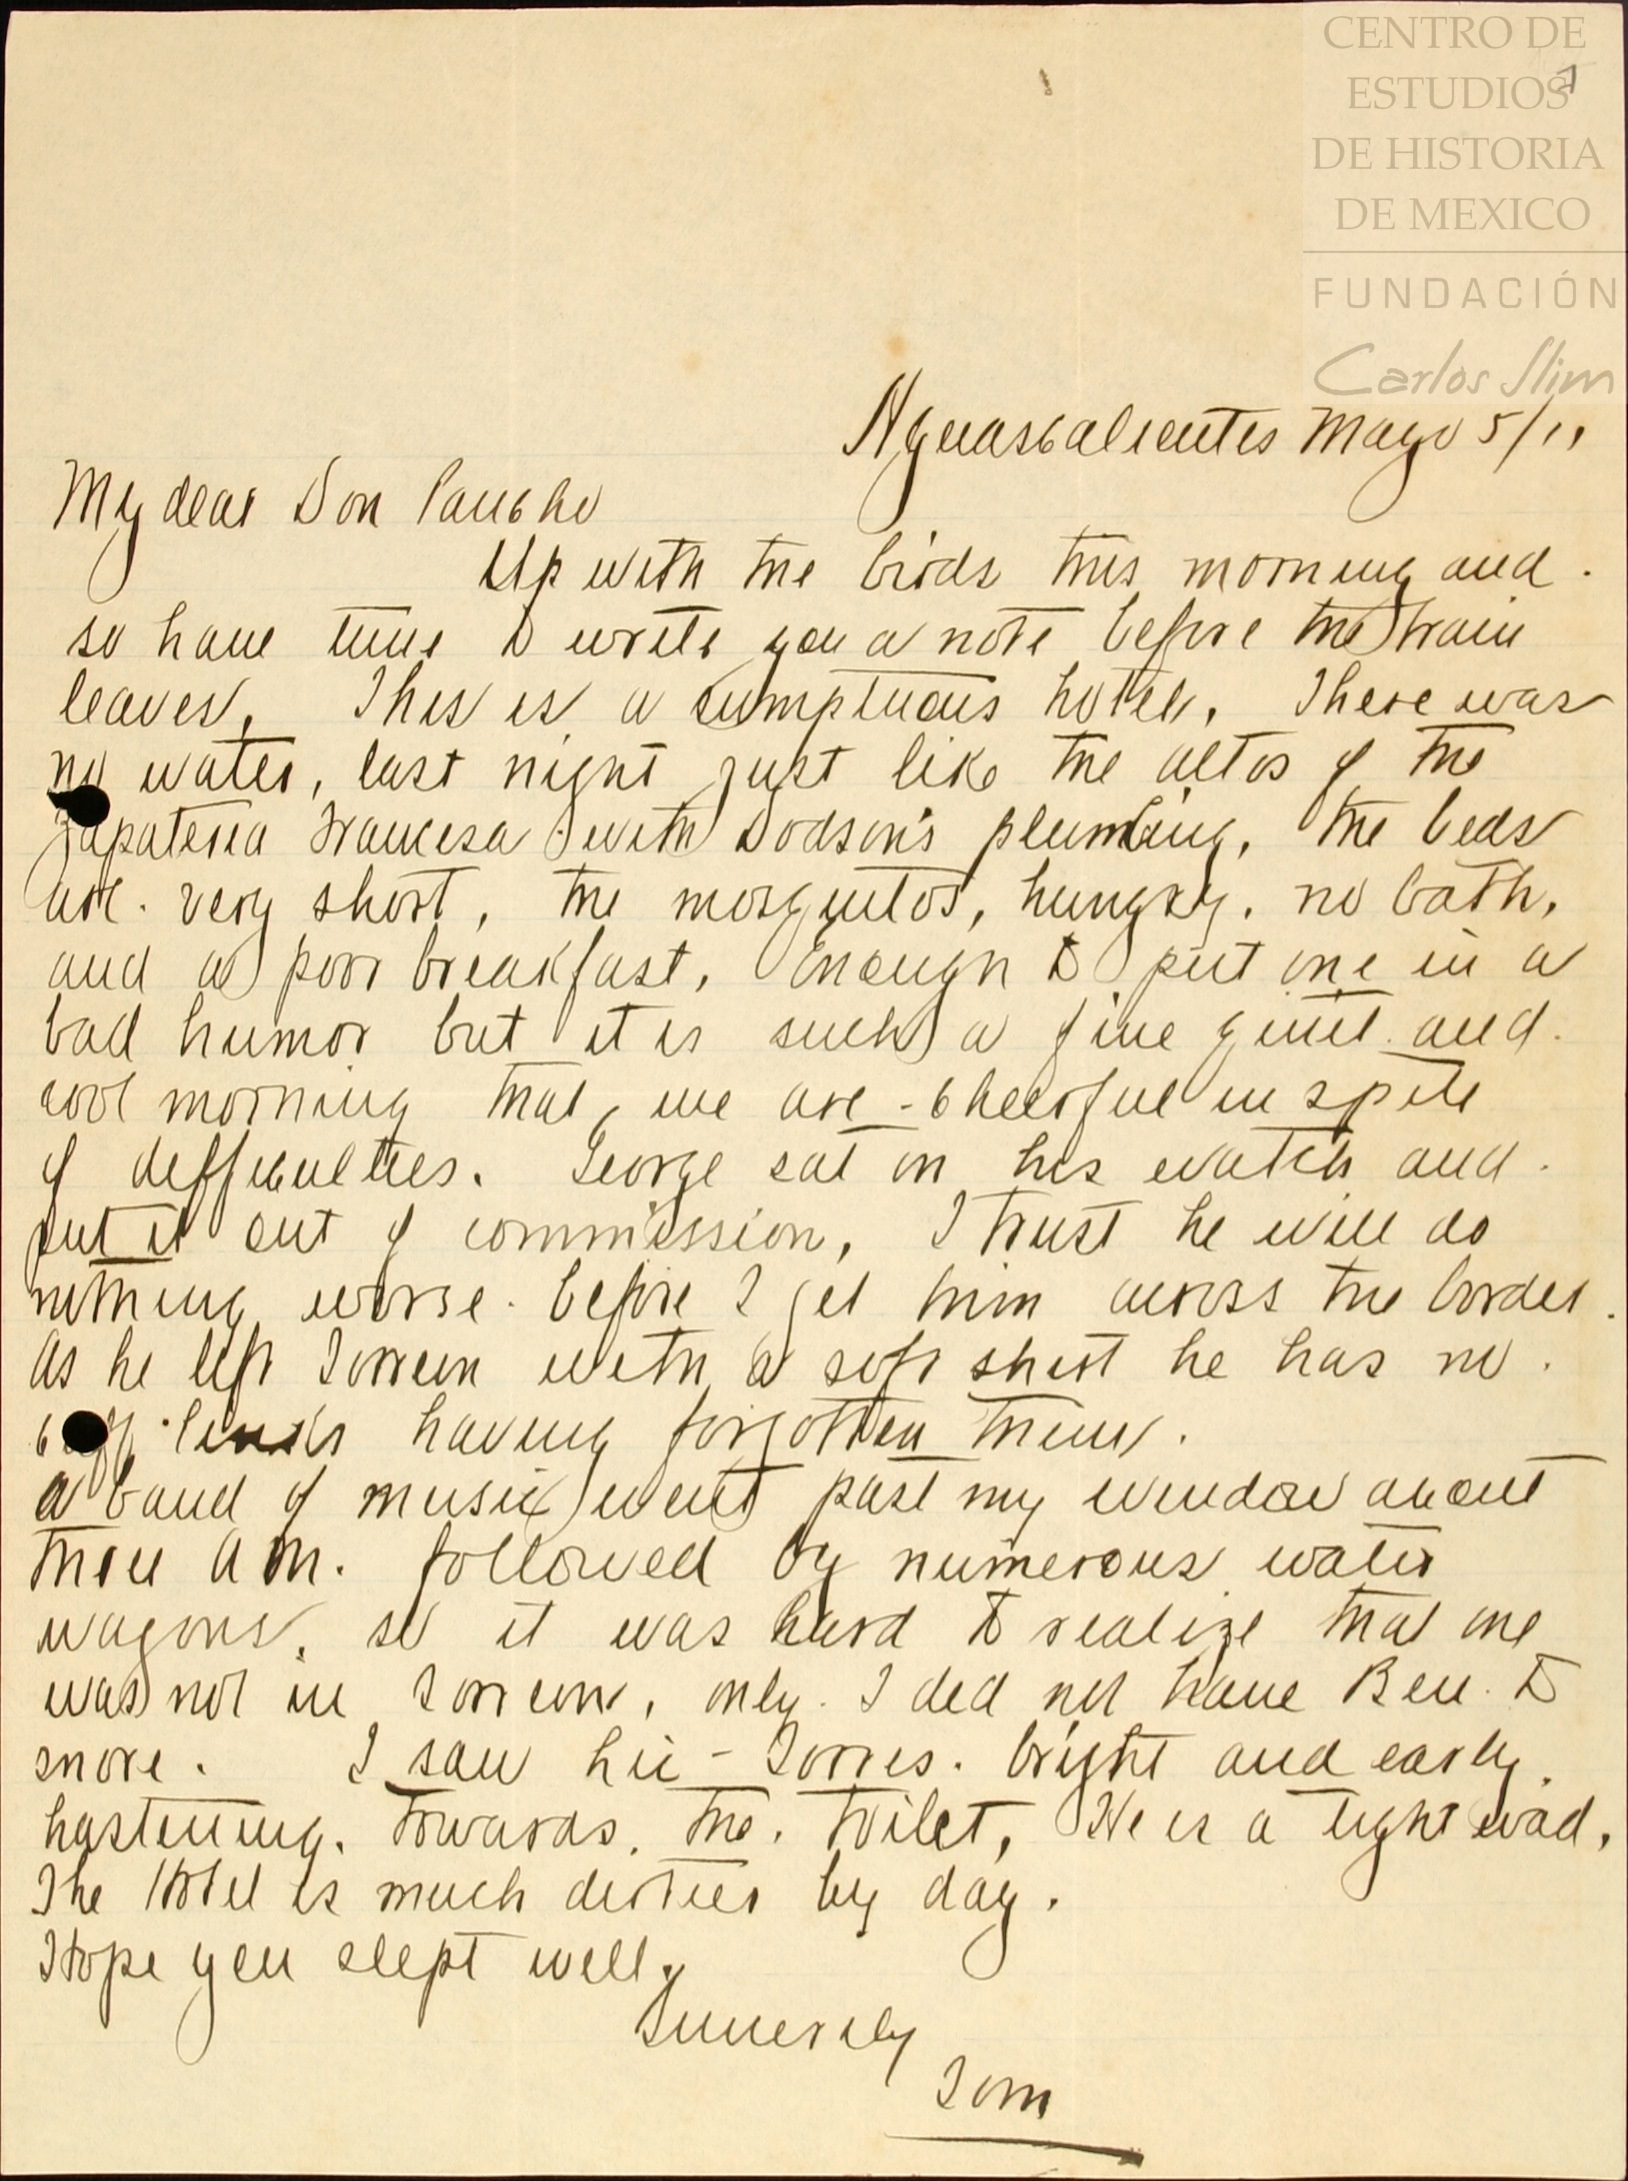 CENTRO DE
ESTUDIOS
DE HISTORIA
DE MEXICO
FUNDACIÓN
Carlos Slim
7
Aguascalientes Mayo 5/11
My dear Don Pancho
Up with the birds this morning and
so have time to write you a note before the train
leaves. This is a sumptuous hotel. There was
no water, last night just like the altos of the
Zapateria Francesa with Dodson's plumbing, the beds
are very short, the mosquitos, hungry, no bath,
and a poor breakfast, enough to put one in a
bad humor but it is such a fine quiet and
cool morning that, we are cheerful in spite
of difficulties. George sat on his watch and
put it out of commission, I trust he will do
nothing worse before I get him across the border.
As he left Torreon with a soft shirt he has no
cuff links having forgotten them.
A band of music went past my window about
three A M. followed by numerous water
wagons, so it was hard to realize that one
was not in Torreon, only I did not have Ben to
snore. I saw Torres bright and early
hastening towards the toilet, He is a tight wad,
The Hotel is much dirtier by day.
Hope you slept well,
Sincerely
Tom